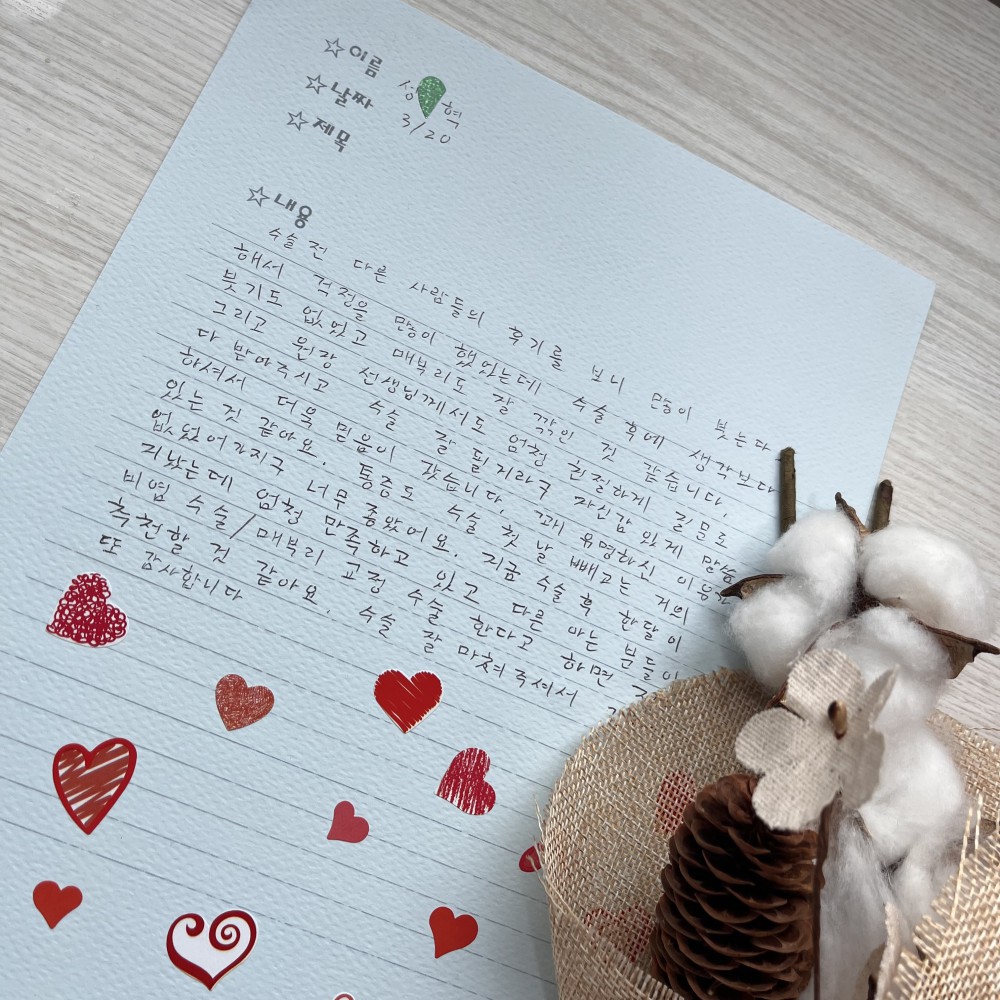 ☆이름 성 혁
☆날짜 3/20
☆제목
☆내용
수술 전 다른 사람들의 후기를 보니 많이 붓는다
해서 걱정을 많이 했었는데 수술 후에 생각보다
붓기도 없었고 매부리도 잘 깎인 것 같습니다.
그리고 원장 선생님께서도 엄청 친절하게 질문도
다 받아주시고 수술 잘 될거라구 자신감 있게 말씀
하셔서 더욱 믿음이 갔습니다. 꽤 유명하신 이유가
있는 것 같아요. 통증도 수술 첫 날 빼고는 거의
없었어가지구 너무 좋았어요. 지금 수술 후 한달이
지났는데 엄청 만족하고 있고 다른 아는 분들이
비염 수술/매부리 교정 수술 한다고 하면
추천할 것 같아요. 수술 잘 마쳐주셔서
또 감사합니다